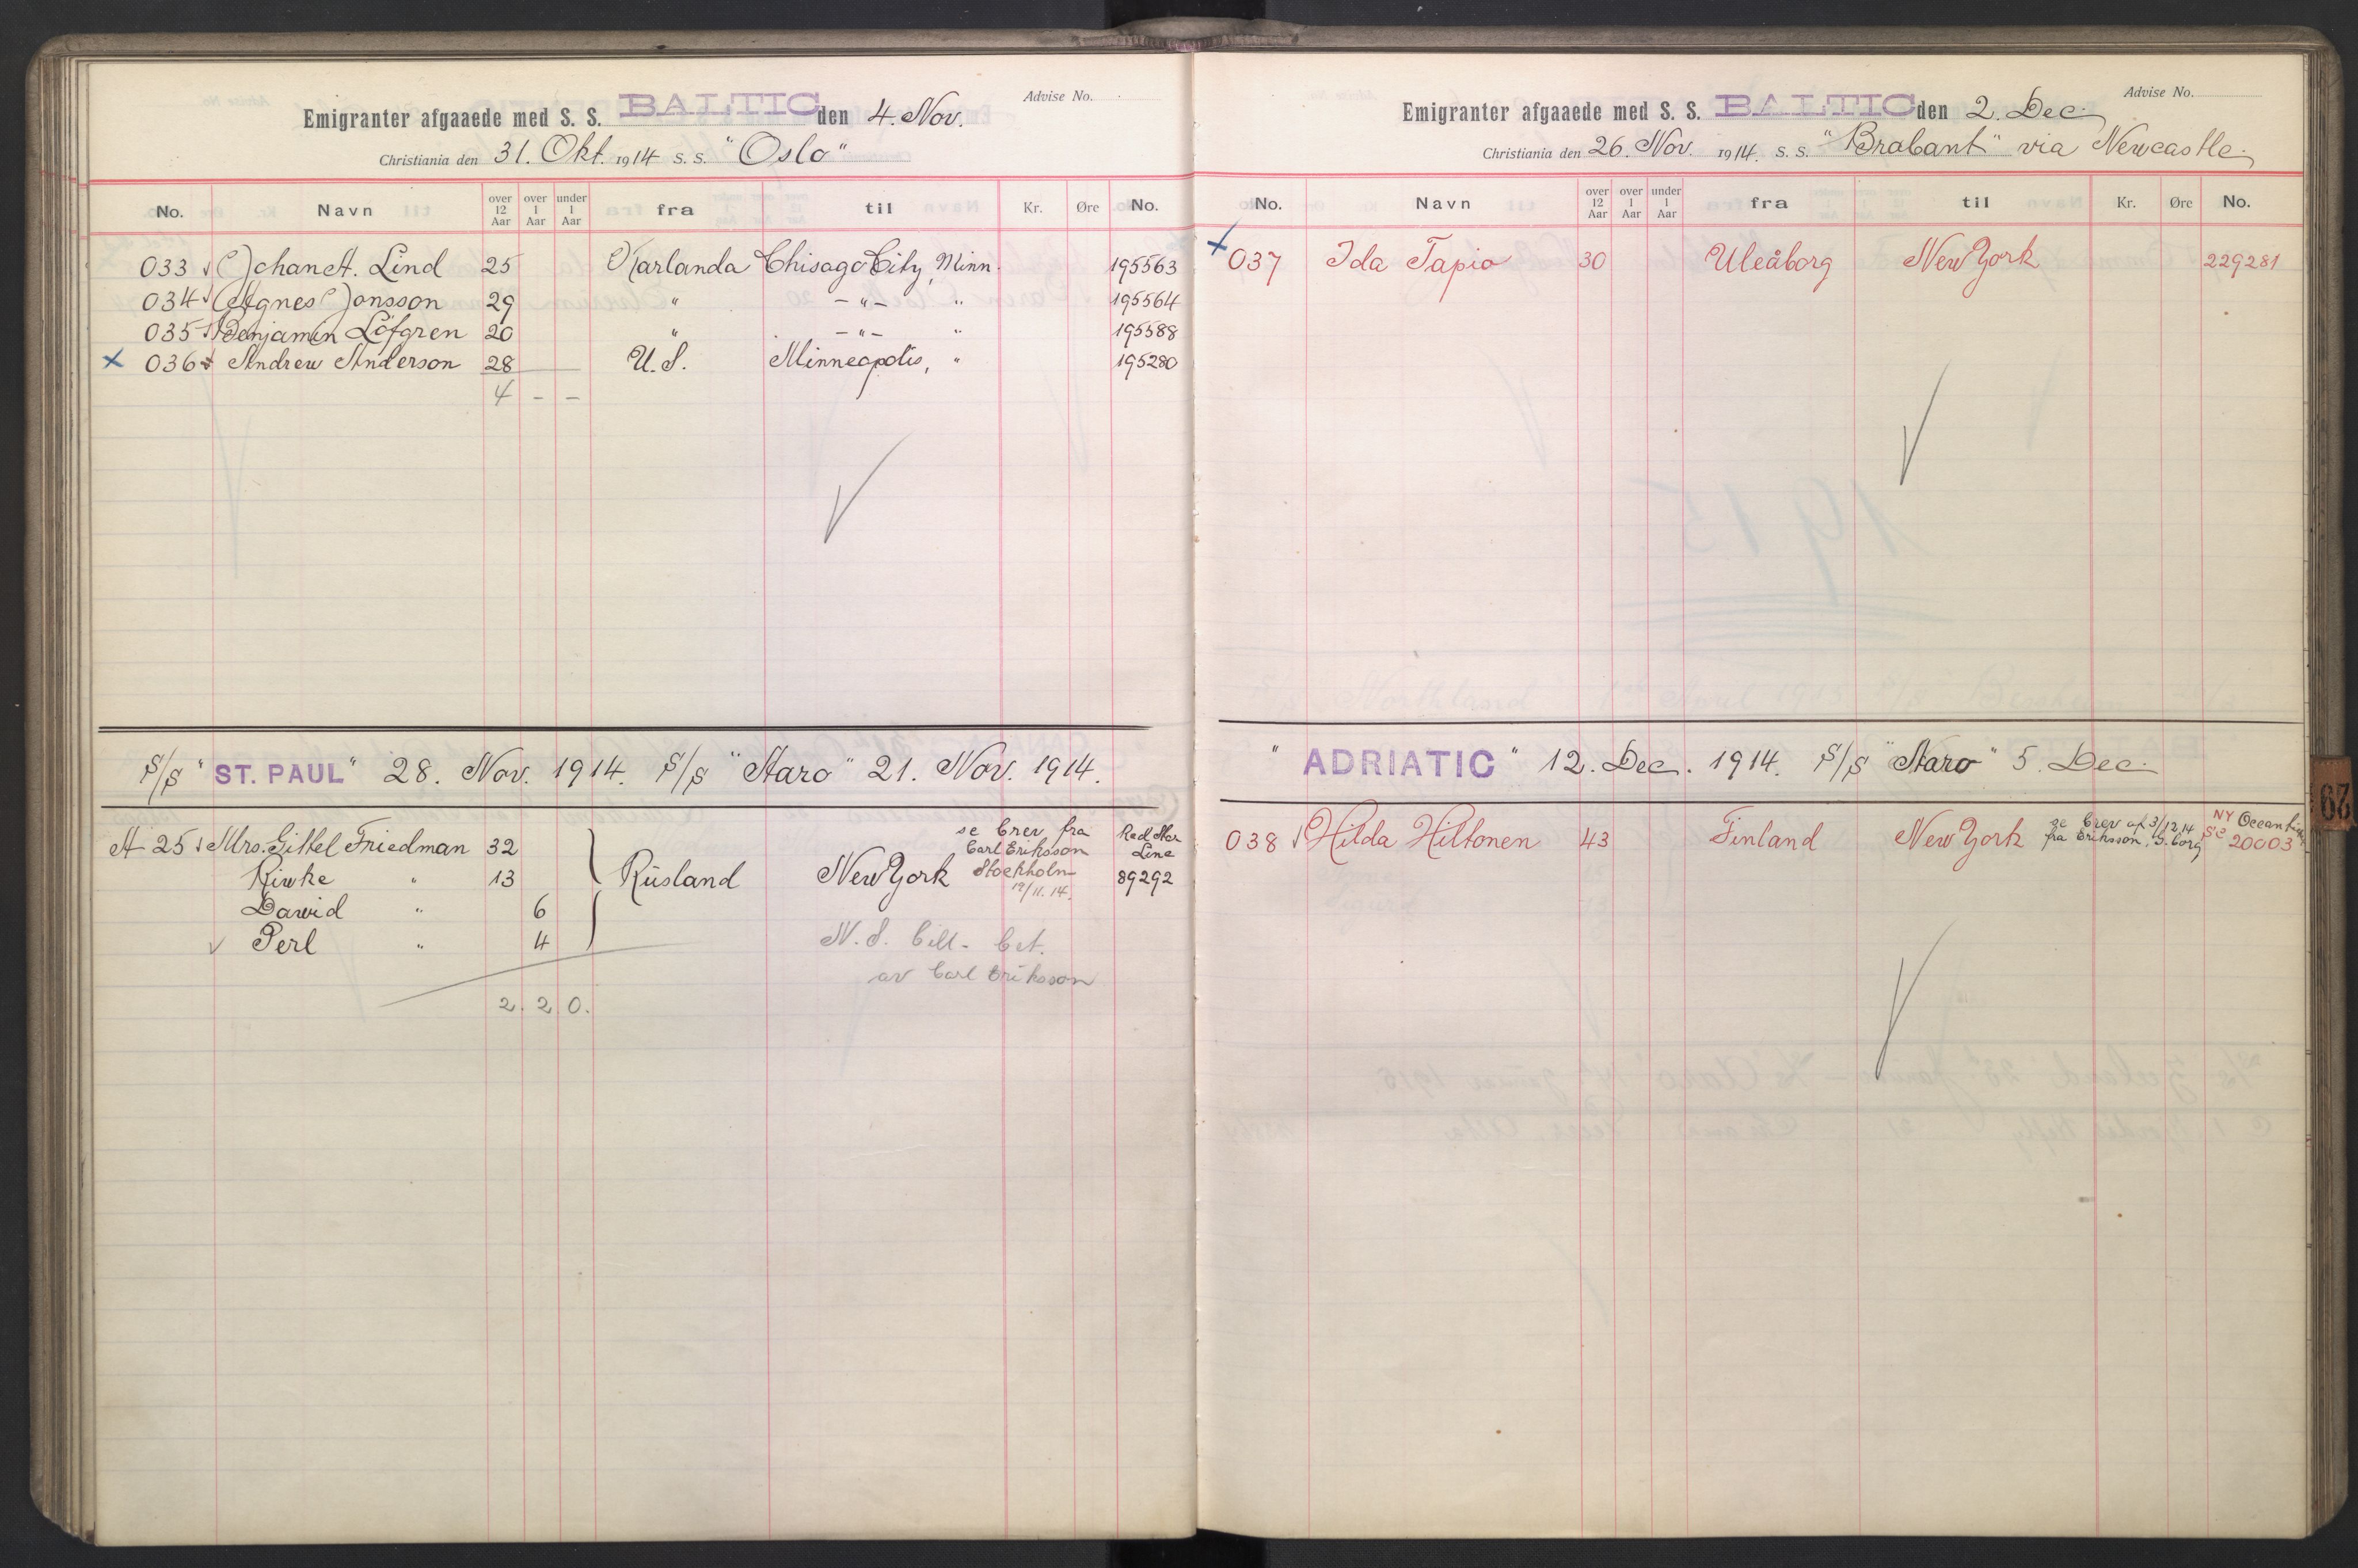 Emigranter afgaaede med S. S. BALTIC den 4. Nov.
Advise No.
Christiania den 31. Okt. 1914 S. S. "Oslo"
No. Navn over 12 Aar over 1 Aar under 1 Aar fra til Kr. Øre No.
033 Johan A. Lind 25 Karlanda Chisago City, Minn. 195563
034 Agnes Jonsson 29 " -"- " 195564
035 Benjamin Löfgren 20 " -"- " 195588
x 036 Andrew Anderson 28 U.S. Minneapolis, " 195280
4 - -
S/S "ST. PAUL" 28. Nov. 1914. S/S "Aaro" 21. Nov. 1914.
A 25 Mrs. Gittel Friedman 32 Rüsland New York se brev fra Carl Eriksson Stockholm 19/11.14. Red Star Line 89292
Riwke " 13
Dawid " 6
Perl " 4
N.S. bill. bet.
av Carl Eriksson
2. 2 0.
Emigranter afgaaede med S. S. BALTIC den 2. Dec.
Advise No.
Christiania den 26. Nov. 1914. S. S. "Brabant" via Newcastle.
No. Navn over 12 Aar over 1 Aar under 1 Aar fra til Kr. Øre No.
x 037 Ida Tapio 30 Uleåborg New York 229281
"ADRIATIC" 12. Dec. 1914. S/S "Aaro" 5. Dec.
038 Hilda Hiltonen 43 Finland New York se brev af 3/12.14 fra Eriksson, G.borg NY Ocean 20003